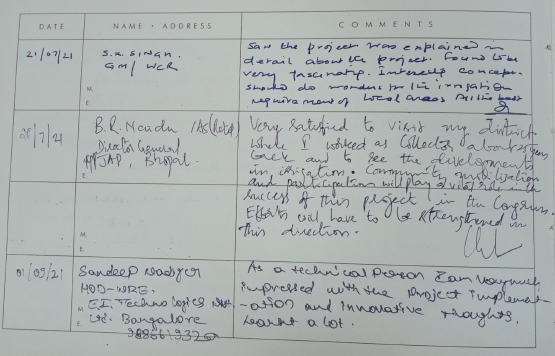 DATE NAME • ADDRESS COMMENTS
21/07/21
S.K. SINGH.
GM/ WCR
M.
E.
Saw the project was explained in
detail about the project. Found to be
very fascinating. Interesting concept.
should do wonders for the irrigation
requirement of local areas. All the best
28/7/21
B.R. Naidu IAS (Retd)
Director General
JAP, Bhopal.
E.
Very satisfied to visit my district
where I worked as Collector about years
back and to see the developments
in irrigation. Community mobilisation
and participation will play a vital role in the
success of this project in the
Efforts will have to be strengthened in
this direction.
M.
E.
01/09/21
Sandeep
HOD-WRE.
M. E.I. Technologies
E. Bangalore
As a technical person I am very much
impressed with the project implement
-ation and innovative thoughts.
learnt a lot.